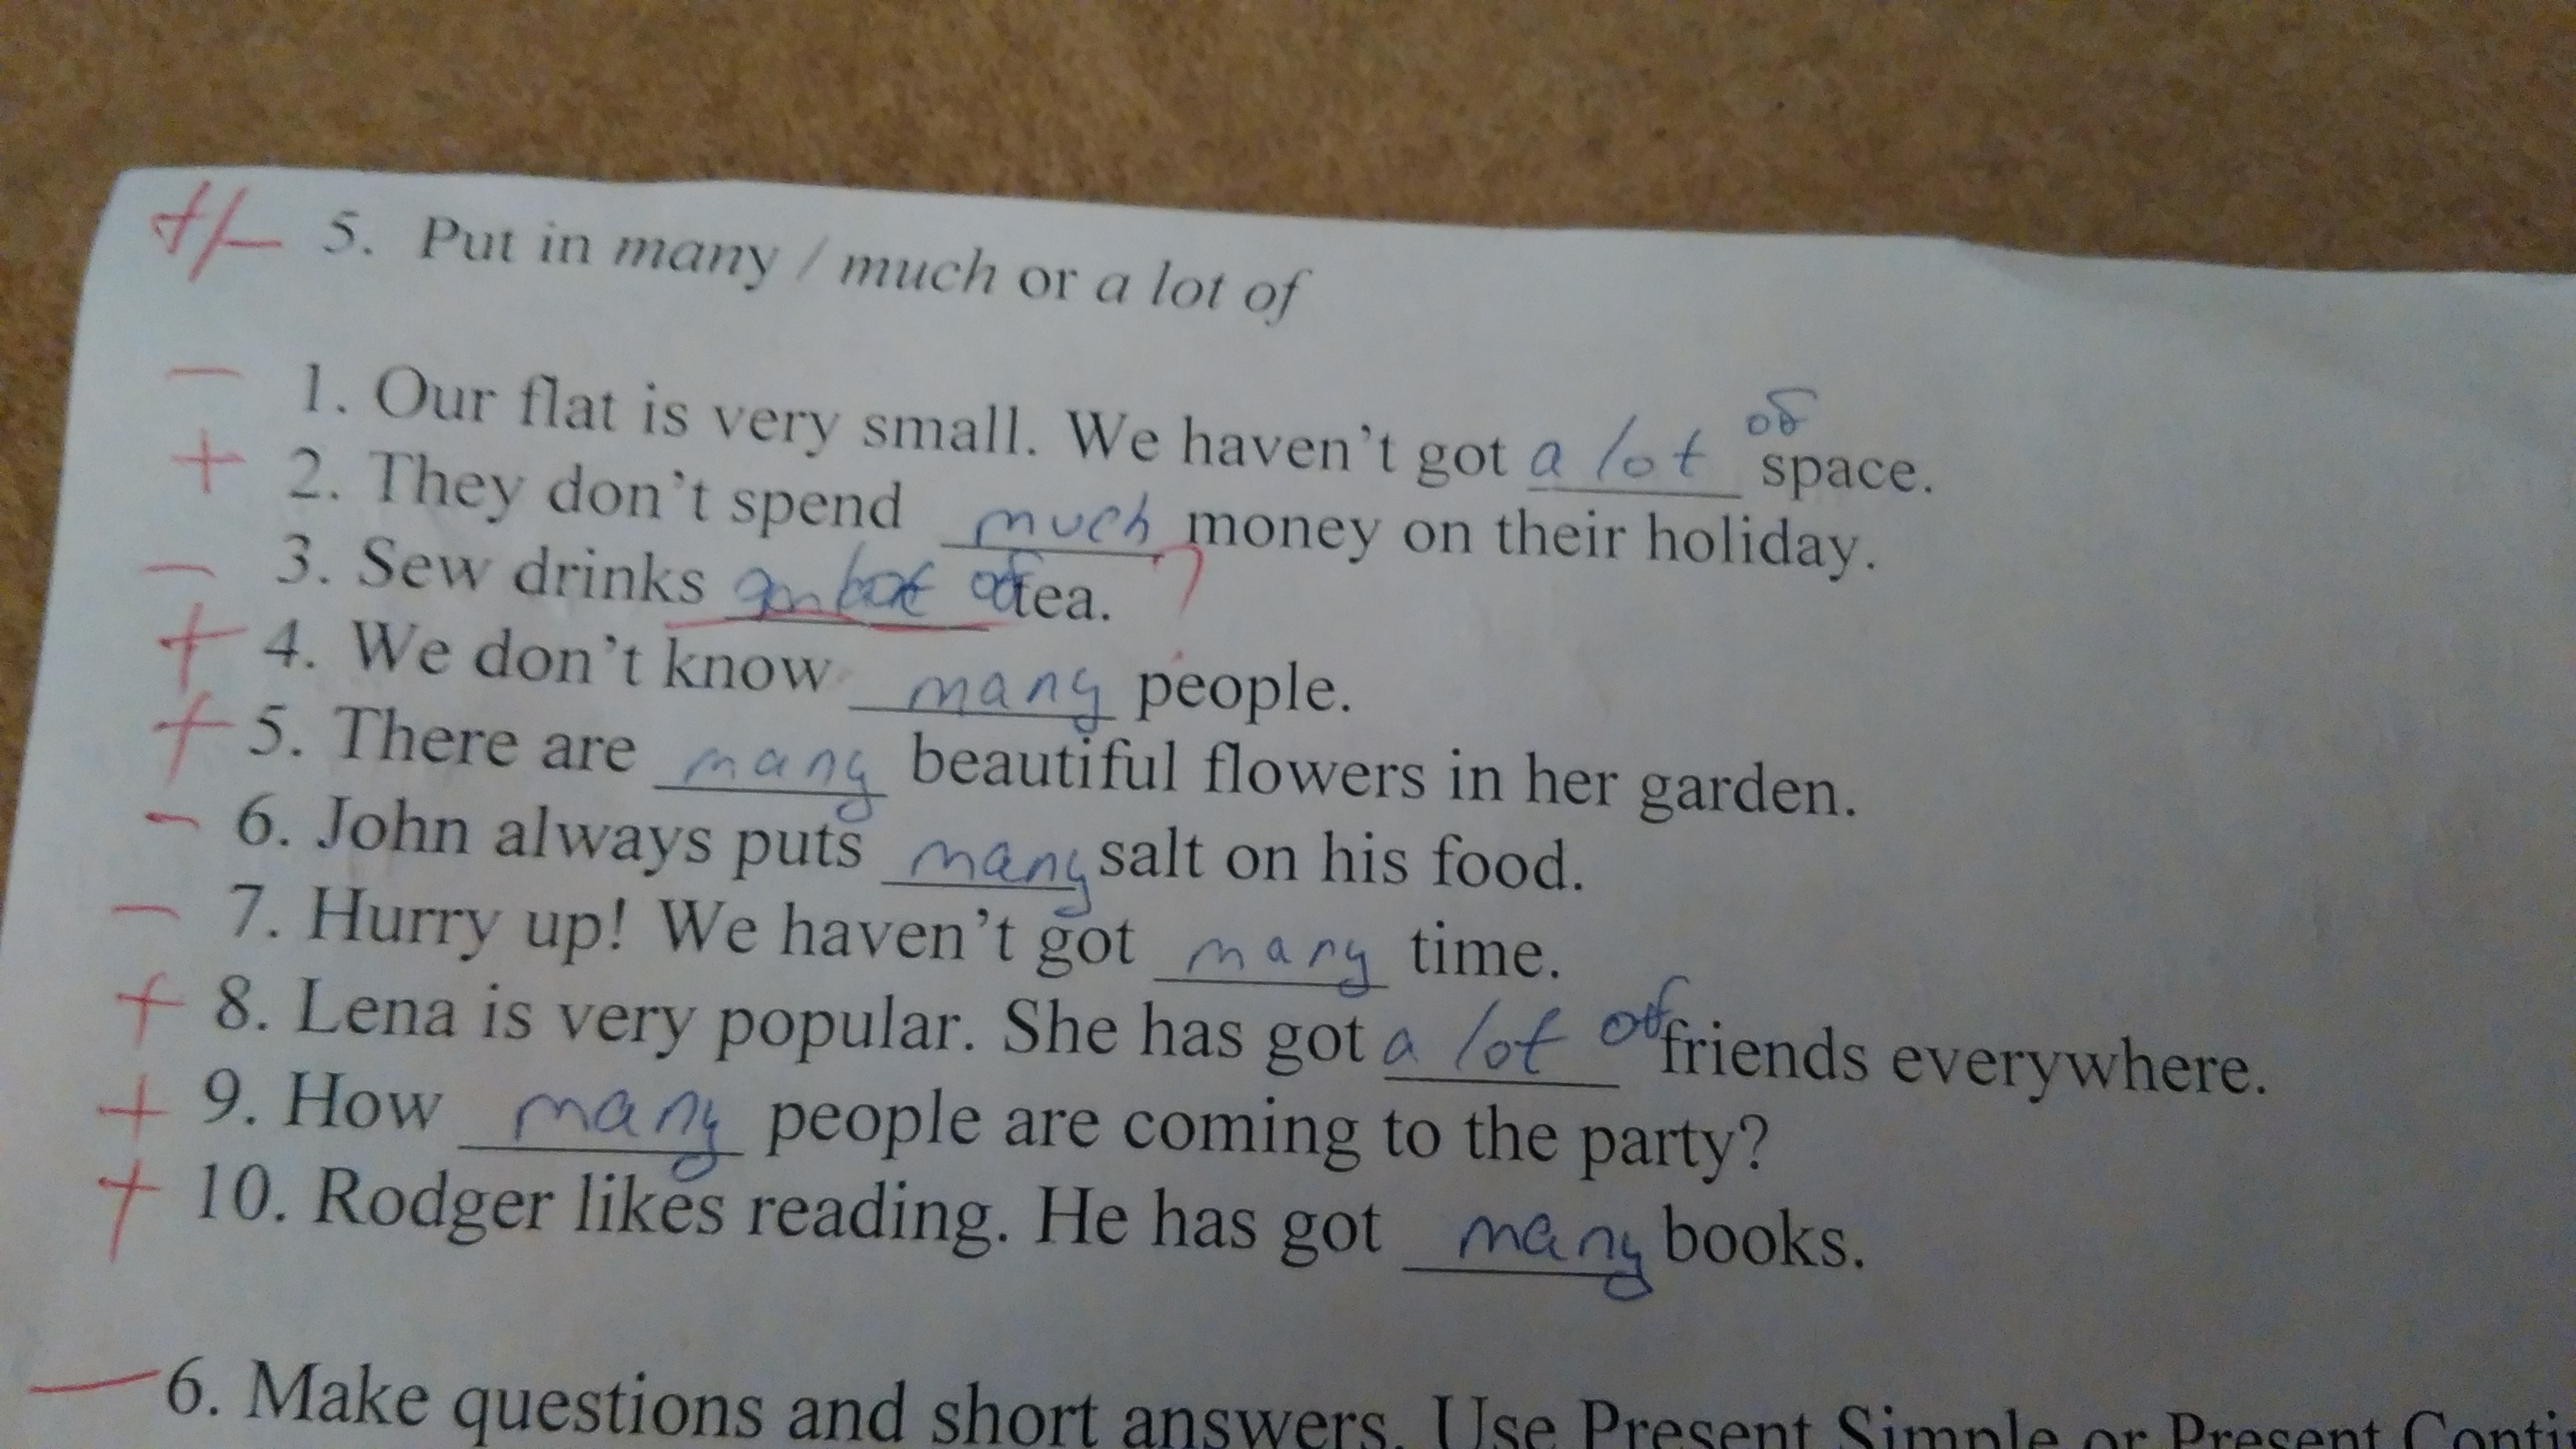 +/- 5. Put in many / much or a lot of
- 1. Our flat is very small. We haven't got a lot of space.
+ 2. They don't spend much money on their holiday.
- 3. Sew drinks lot of tea. ?
+ 4. We don't know many people.
+ 5. There are many beautiful flowers in her garden.
- 6. John always puts many salt on his food.
- 7. Hurry up! We haven't got many time.
+ 8. Lena is very popular. She has got a lot of friends everywhere.
+ 9. How many people are coming to the party?
+ 10. Rodger likes reading. He has got many books.
- 6. Make questions and short answers. Use Present Simple or Present Conti